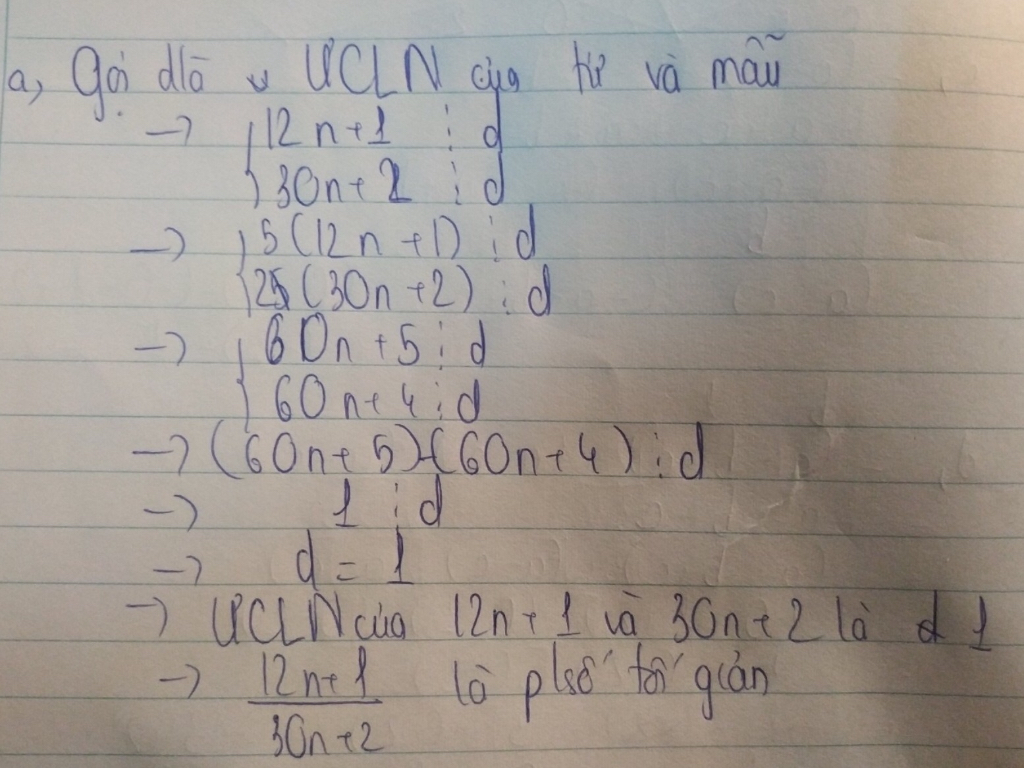 a, Gọi d là ƯCLN của tử và mẫu
→ { 12n+1 ⋮ d
30n+2 ⋮ d
→ { 5(12n+1) ⋮ d
2(30n+2) ⋮ d
→ { 60n+5 ⋮ d
60n+4 ⋮ d
→ (60n+5)-(60n+4) ⋮ d
→ 1 ⋮ d
→ d = 1
→ ƯCLN của 12n+1 và 30n+2 là 1
→ 12n+1 là psố tối giản
30n+2